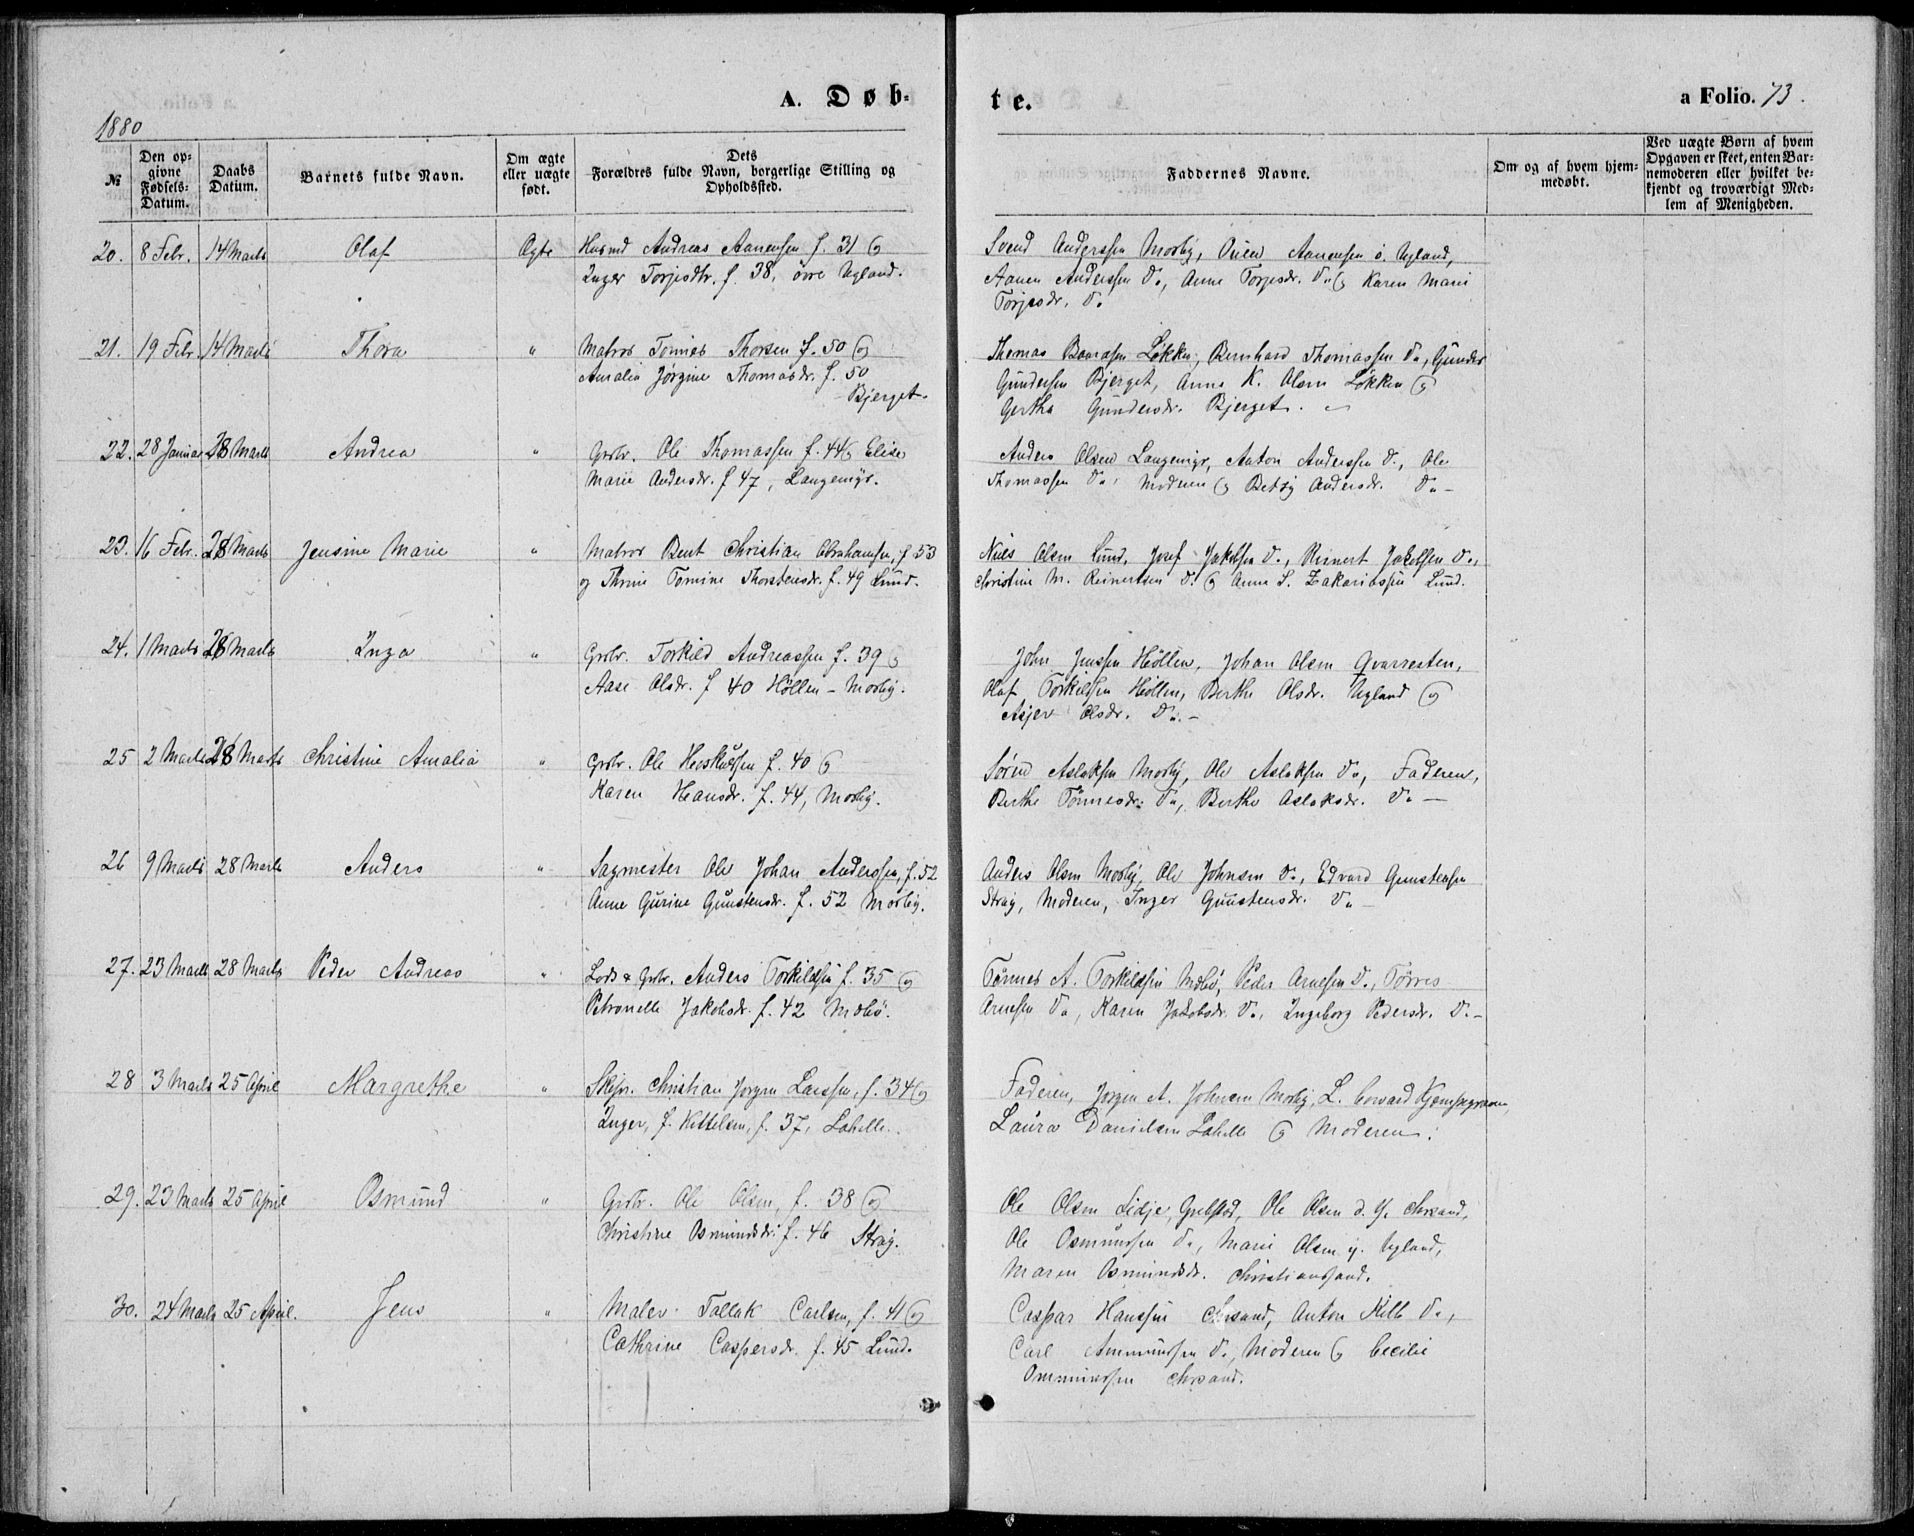 A. Døb-
te.
a Folio. 73.
1880
№
Den op-
givne
Fødsels-
Datum.
Daabs
Datum.
Barnets fulde Navn.
Om ægte
eller uægte
født.
Dets
Forældres fulde Navn, borgerlige Stilling og
Opholdssted.
Faddernes Navne.
Om og af hvem hjem-
medøbt.
Ved uægte Børn af hvem
Opgaven er skeet, enten Bar-
nemoderen eller hvilket be-
kjendt og troværdigt Med-
lem af Menigheden.
20. 8 Febr. 14 Marts Olaf Ægte Husmd Andreas Aanensen f. 31 og
Inger Torjesdtr. f. 38, øvre Ugland.
Svend Anderssen Mosby, Aanensen ö. Ugland,
Aanen Anderssen Do, Anne Torjesdr. Do og Karen Marie
Torjesdr. Do
21. 19 Febr. 14 Marts Thora " Matros Tønnes Thorsen f. 50 og
Amalia Jørgine Thomasdr. f. 50
Bjerget.
Thomas Løkken, Bernhard Thomassen Do, Gunder
Gundersen Bjerget, Anne K. Olsen Løkken og
Gertha Gundersdr. Bjerget.
22. 28 Januar 28 Marts Andrea " Grbr. Ole Thomassen f. 44 og Elise
Marie Andersdr. f 47, Langemyr.
Anders Olsen Langemyr, Anton Anderssen Do, Ole
Thomassen Do, Moderen og Betsy Andersdr. Do -
23. 16 Febr. 28 Marts Jensine Marie " Matros Bent Christian Abrahamsen, f 53
og Thrine Tomine Thorstensdr. f. 49 Lund.
Niels Olsen Lund, Josef Jakobsen Do, Reinert Jakobsen Do,
Christine M. Reinertsen Do og Anne S. Zakariassen Lund.
24. 1 Marts 28 Marts Inga " Grbr. Torkild Andreassen f. 39 og
Aase Olsdr. f 40 Høllen - Mosby.
John Jenssen Høllen, Johan Olsen Qvarresten,
Olaf Torkildsen Høllen, Berthe Olsdr. Ugland og
Asjer Olsdr. Do -
25 2 Marts 28 Marts Christine Amalia " Grbr. Ole f. 40 og
Karen Hansdr. f. 44, Mosby.
Søren Aslaksen Mosby, Ole Aslaksen Do, Faderen,
Berthe Tønnesdr. Do, Berthe Aslaksdr. Do -
26 9 Marts 28 Marts Anders " Sagmester Ole Johan Anderssen, f. 52
Anne Gurine Gunstensdr. f. 52 Mosby.
Anders Olsen Mosby, Ole Johnsen Do, Edvard Gunstensen
Strag, Moderen, Inger Gunstensdr. Do -
27. 23 Marts 28 Marts Peder Andreas " Lods & Grbr. Anders Torkildsen f. 35 og
Petronelle Jakobsdr. f. 42 Mæbø.
Tønnes A. Torkildsen Mæbø, Peder Arnesen Do, Tørres
Arnesen Do, Karen Jakobsdr. Do, Ingeborg Pedersdr. Do -
28 3 Marts 25 April Margrethe " Skpr. Christian Jørgen Larssen, f. 34 og
Inger, f. Kittelsen, f. 37, Lahelle.
Faderen, Jørgen A. Johnsen Mosby, L.
Laura Danielsen Lahelle og Moderen.
29. 23 Marts 25 April Osmund " Grbr. Ole Olsen, f. 38 og
Christine Osmundsdr. f. 46 Strag.
Ole Olsen Lidje, Grebstad, Ole Olsen d. y. Chrsand,
Ole Osmundsen Do, Marie Olsen y. Ugland,
Maren Osmundsdr. Christianssand.
30. 24 Marts 25 April. Jens " Maler Tallak Carlsen, f. 41 og
Cathrine Caspersdr. f. 45 Lund.
Caspar Hanssen Chrsand, Anton Do,
Carl Ammundsen Do, Moderen og Cecilie
Ommundsen Chrsand.